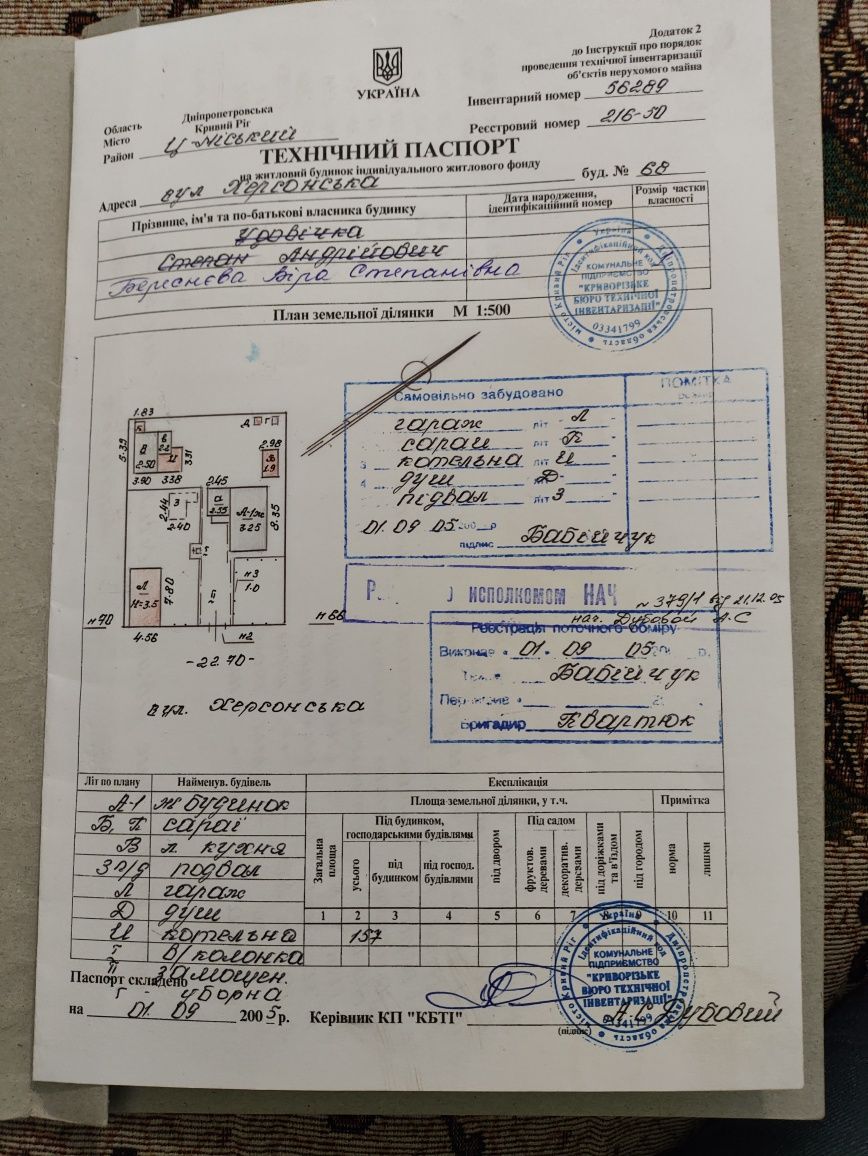 Додаток 2
до Інструкції про порядок
проведення технічної інвентаризації
об'єктів нерухомого майна
УКРАЇНА
Інвентарний номер 56289
Реєстровий номер 216-50
Область Дніпропетровська
Місто Кривий Ріг
Район Ц-Міський
ТЕХНІЧНИЙ ПАСПОРТ
на житловий будинок індивідуального житлового фонду
Адреса вул Херсонська буд. № 68
Прізвище, ім'я та по-батькові власника будинку
Дата народження, ідентифікаційний номер
Розмір частки власності
Удовічка
Степан Андрійович
Береснєва Віра Степанівна
Україна Дніпропетровська область місто Кривий Ріг
Ідентифікаційний код
КОМУНАЛЬНЕ
ПІДПРИЄМСТВО
"КРИВОРІЗЬКЕ
БЮРО ТЕХНІЧНОЇ
ІНВЕНТАРИЗАЦІЇ"
03341799
План земельної ділянки М 1:500
Самовільно забудовано
ПОМІТКА
гараж літ Л
сарай літ П
3 котельна літ И
4 душ Д
підвал літ З
01. 09 05 200 р
підпис Бабійчук
ИСПОЛКОМОМ НАЧ
№ 379/1 від 21.12.05
нач. Дубовой А.С
Реєстрація поточного обміру
Виконав " 01 " 09 05 р.
Бабійчук
Бригадир Квартюк
1.83
Д Г
5.39
Б
2.50
И
3.31
3.90 3.38
2.98
В
1.9
2.45
2.44
З
2.40
а
2.55
А-1ж
3.25
8.35
Л
Н=3.5
7.80
№3
1.0
№70
№66
4.56
№2
-22.70-
вул. Херсонська
Літ по плану
Найменув. будівель
Експлікація
Площа земельної ділянки, у т.ч.
Примітка
Загальна площа
Під будинком, господарськими будівлями
усього
під будинком
під господ. будівлями
під двором
Під садом
фруктов. деревами
декоратив. деревами
під доріжками та в'їздом
під городом
норма
лишки
1 2 3 4 5 6 7 8 9 10 11
157
А-1 ж будинок
Б, П сараї
В л. кухня
З п/д подвал
Л гараж
Д душ
И котельна
І в/колонка
ІІ замощен.
Г уборна
Паспорт складено
на 01. 09 2005 р.
Керівник КП "КБТІ" А.С Дубовий
(підпис)
Україна Дніпропетровська область місто Кривий Ріг
Ідентифікаційний код
КОМУНАЛЬНЕ
ПІДПРИЄМСТВО
"КРИВОРІЗЬКЕ
БЮРО ТЕХНІЧНОЇ
ІНВЕНТАРИЗАЦІЇ"
03341799